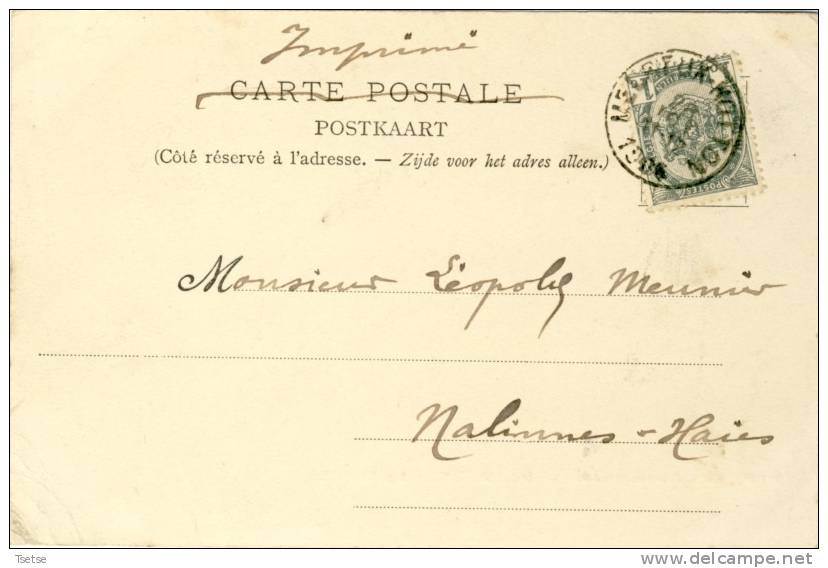 Imprimé
CARTE POSTALE
POSTKAART
(Côté réservé à l'adresse. — Zijde voor het adres alleen.)
POSTES
Monsieur Léopold Meunier
Nalinnes-Haies
Tsetse
www.delcampe.net